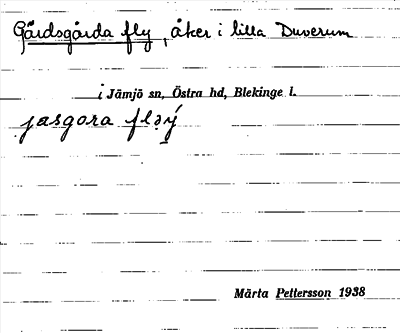 Gärdsgårda fly, åker i lilla Duverum
i Jämjö sn, Östra hd, Blekinge l.
jasgora fləý
Märta Pettersson 1938